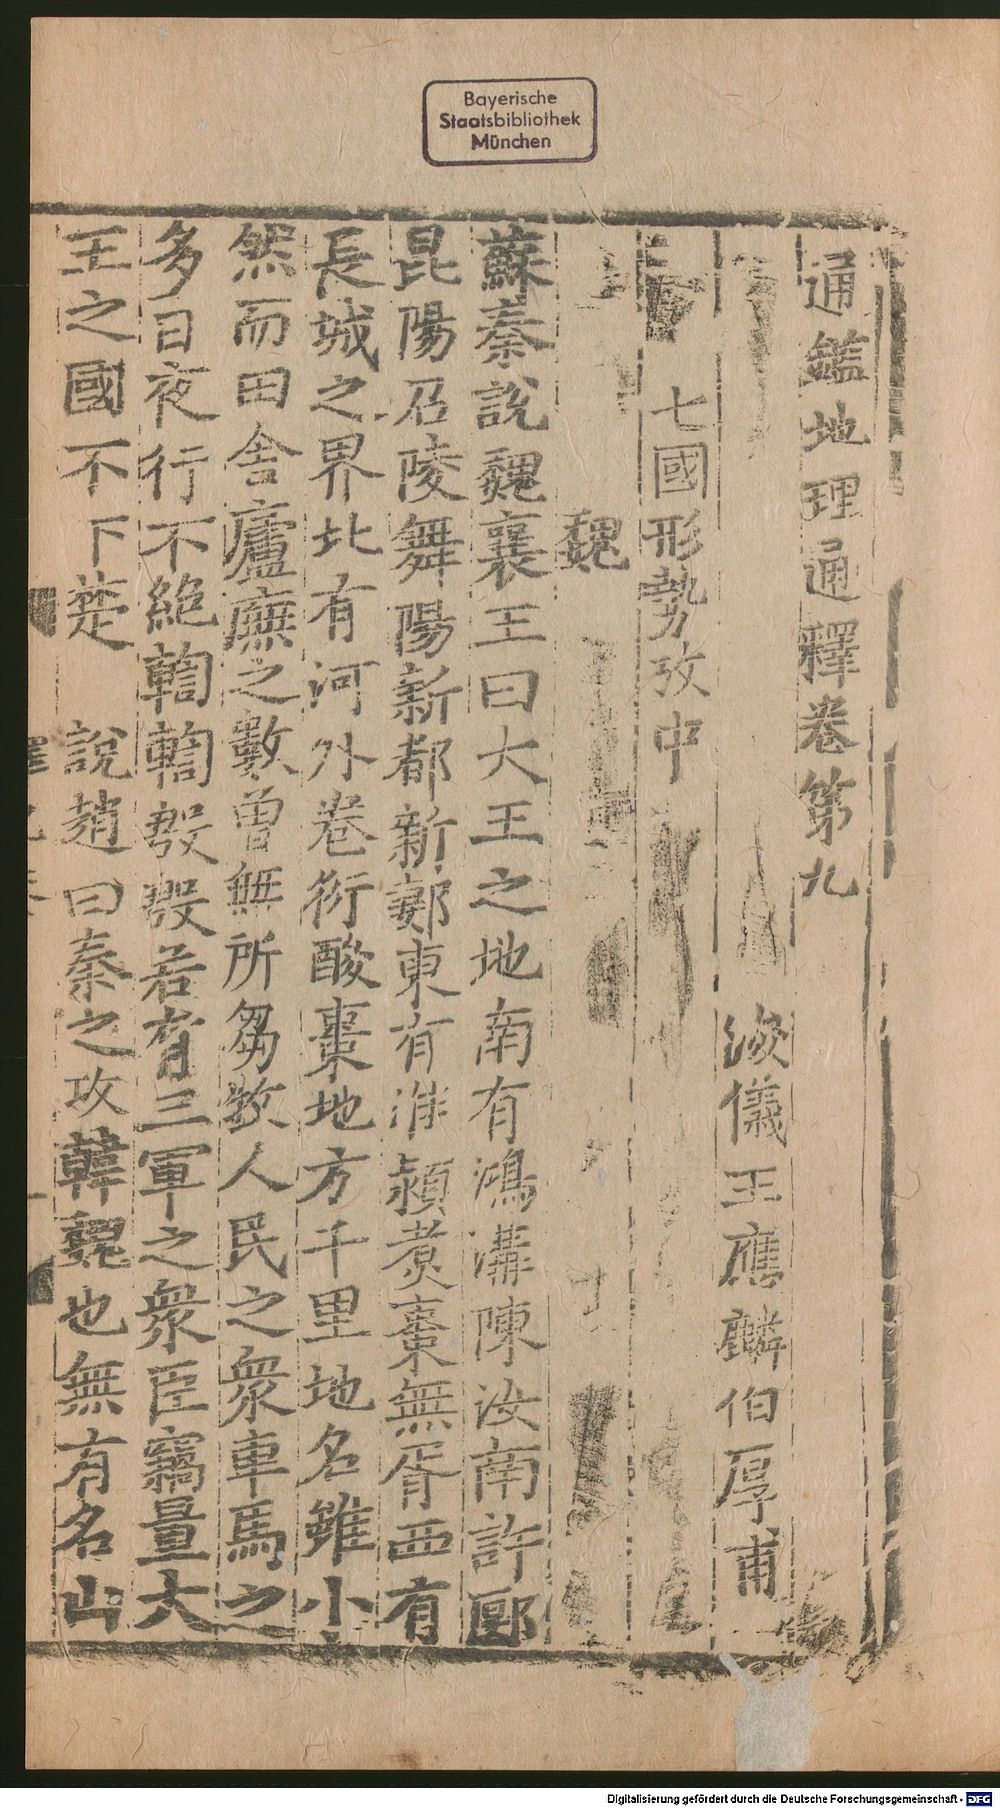 Bayerische
Staatsbibliothek
München
通鑑地理通釋卷第九
浚儀王應麟伯厚甫
七國形勢攷中
魏
蘇秦說魏襄王曰大王之地南有鴻溝陳汝南許郾
昆陽召陵舞陽新都新郪東有淮潁煑棗無胥西有
長城之界北有河外卷衍酸棗地方千里地名雖小
然而田舍廬廡之數曾無所芻牧人民之衆車馬之
多日夜行不絶輷輷殷殷若有三軍之衆臣竊量大
王之國不下楚 說趙曰秦之攻韓魏也無有名山
Digitalisierung gefördert durch die Deutsche Forschungsgemeinschaft - DFG